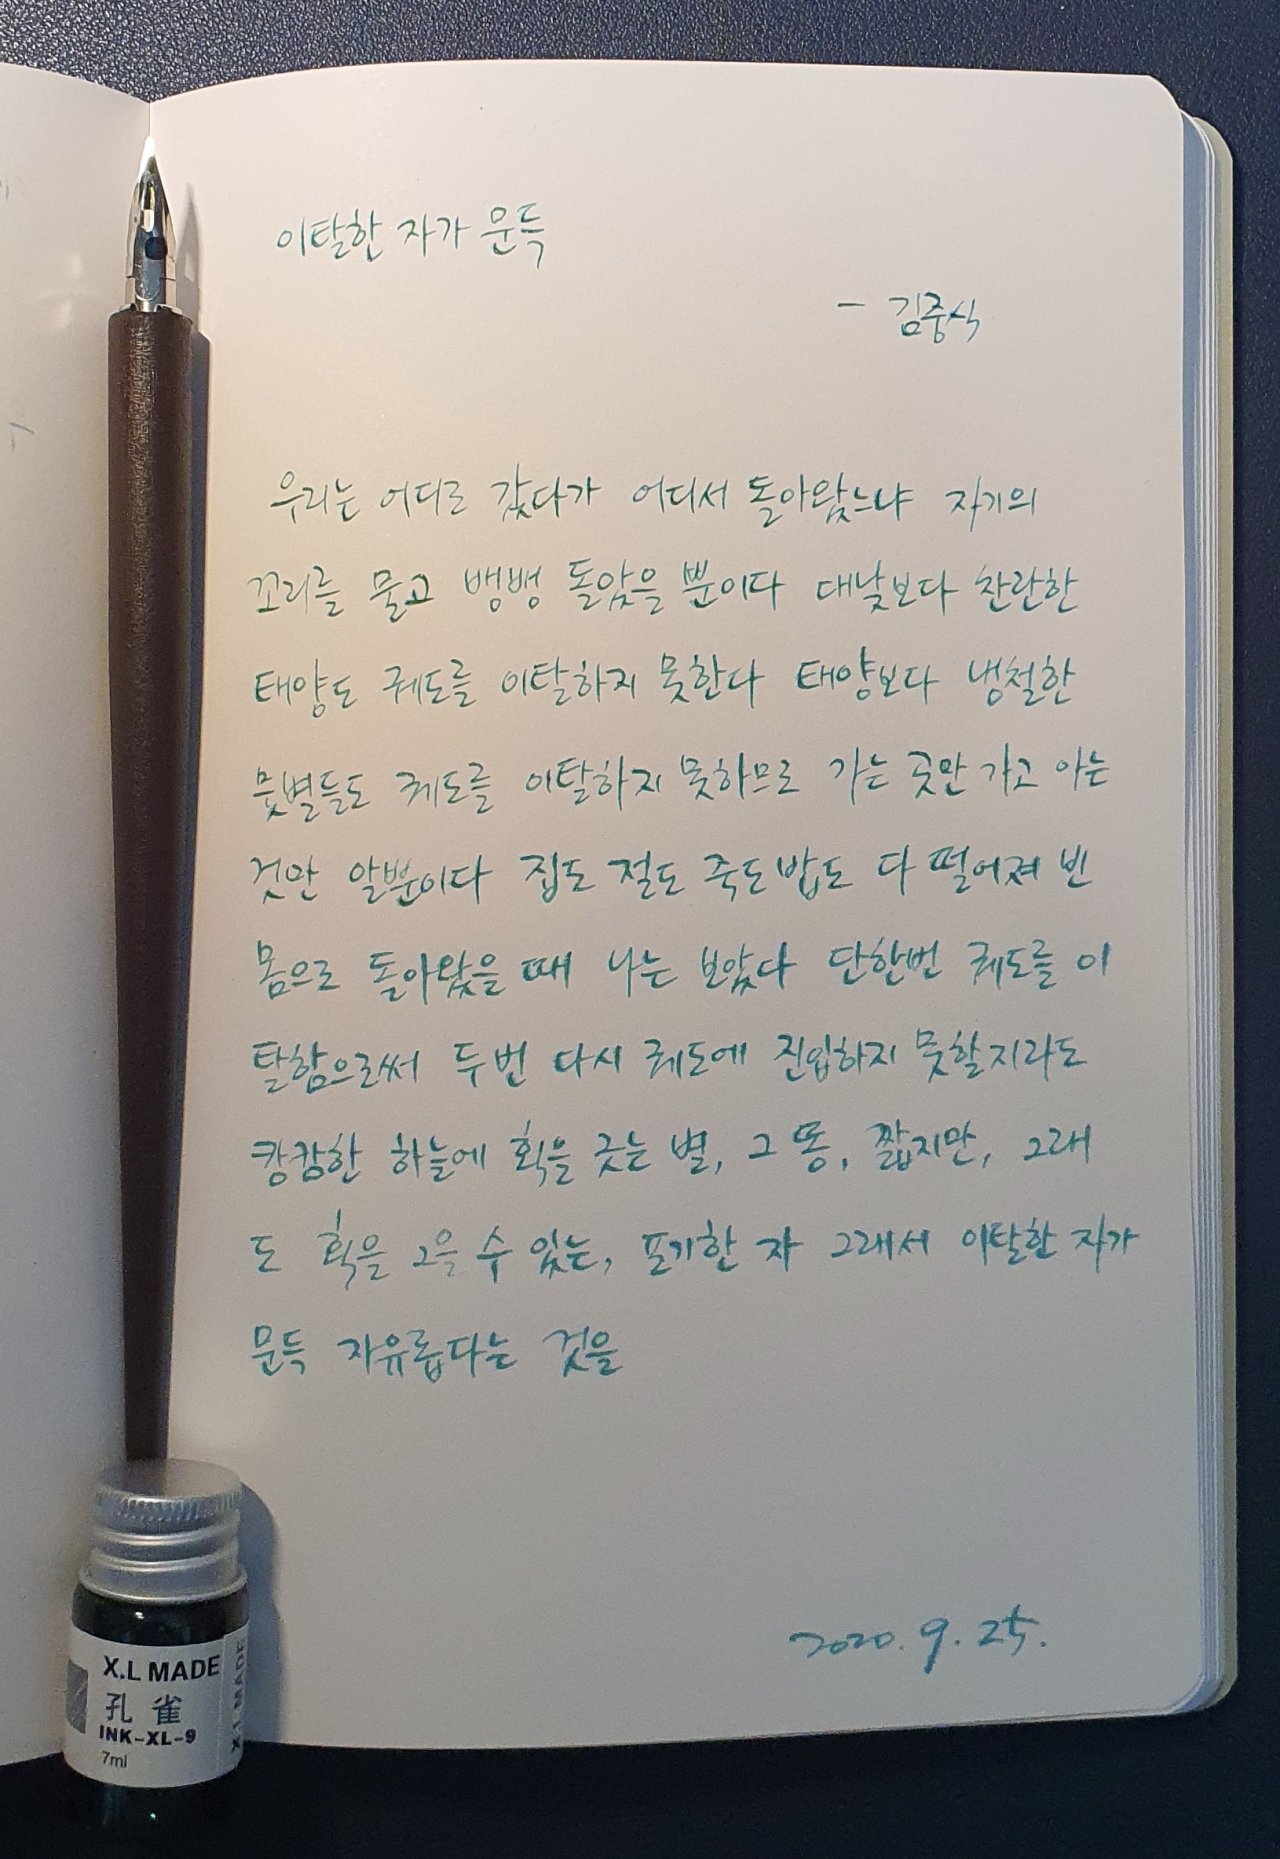 이탈한 자가 문득
- 김중식
우리는 어디로 갔다가 어디서 돌아왔느냐 자기의
꼬리를 물고 뱅뱅 돌았을 뿐이다 대낮보다 찬란한
태양도 궤도를 이탈하지 못한다 태양보다 냉철한
뭇별들도 궤도를 이탈하지 못하므로 가는 곳만 가고 아는
것만 알뿐이다 집도 절도 죽도 밥도 다 떨어져 빈
몸으로 돌아왔을 때 나는 보았다 단한번 궤도를 이
탈함으로써 두번 다시 궤도에 진입하지 못할지라도
캄캄한 하늘에 획을 긋는 별, 그 똥, 짧지만, 그래
도 획을 그을 수 있는, 포기한 자 그래서 이탈한 자가
문득 자유롭다는 것을
2020. 9. 25.
X.L MADE
孔雀
INK-XL-9
7ml
X.L MADE